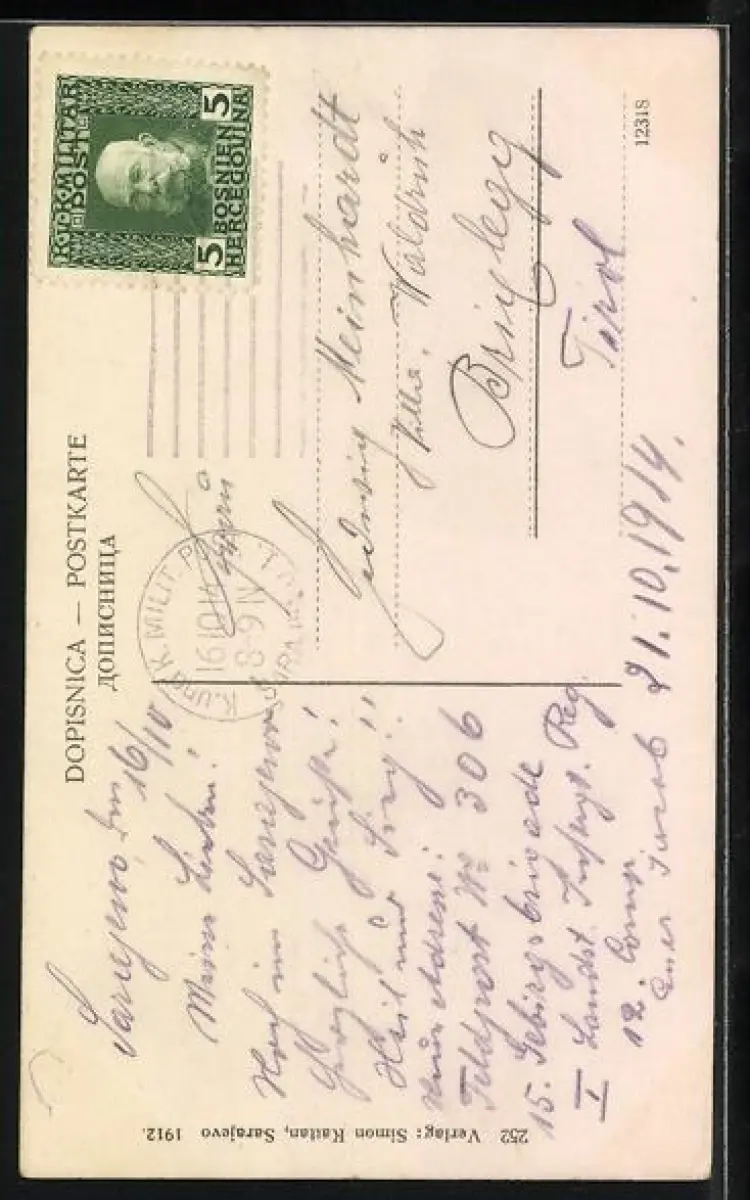 DOPISNICA — POSTKARTE
ДОПИСНИЦА
K.u.K. MILITÄR
POST
BOSNIEN
HERCEGOVINA
5 5
K. und K. MILIT. P
16 10 14
8-9 N
Sarajevo, den 16/10
Meine Lieben!
Noch in Sarajevo
Herzliche Grüße!
Heil und Sieg!!
Feldpost No 306
15. Gebirgsbrigade
I Landst. Reg.
12. Comp.
21.10.1914.
Hedwig Meinhardt
Villa
Brixlegg
Tirol
12318
252 Verlag: Simon Kattan, Sarajevo 1912.